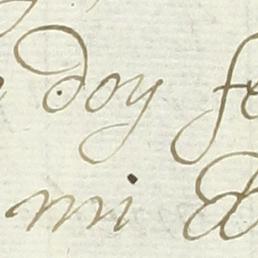 doy fe
mi